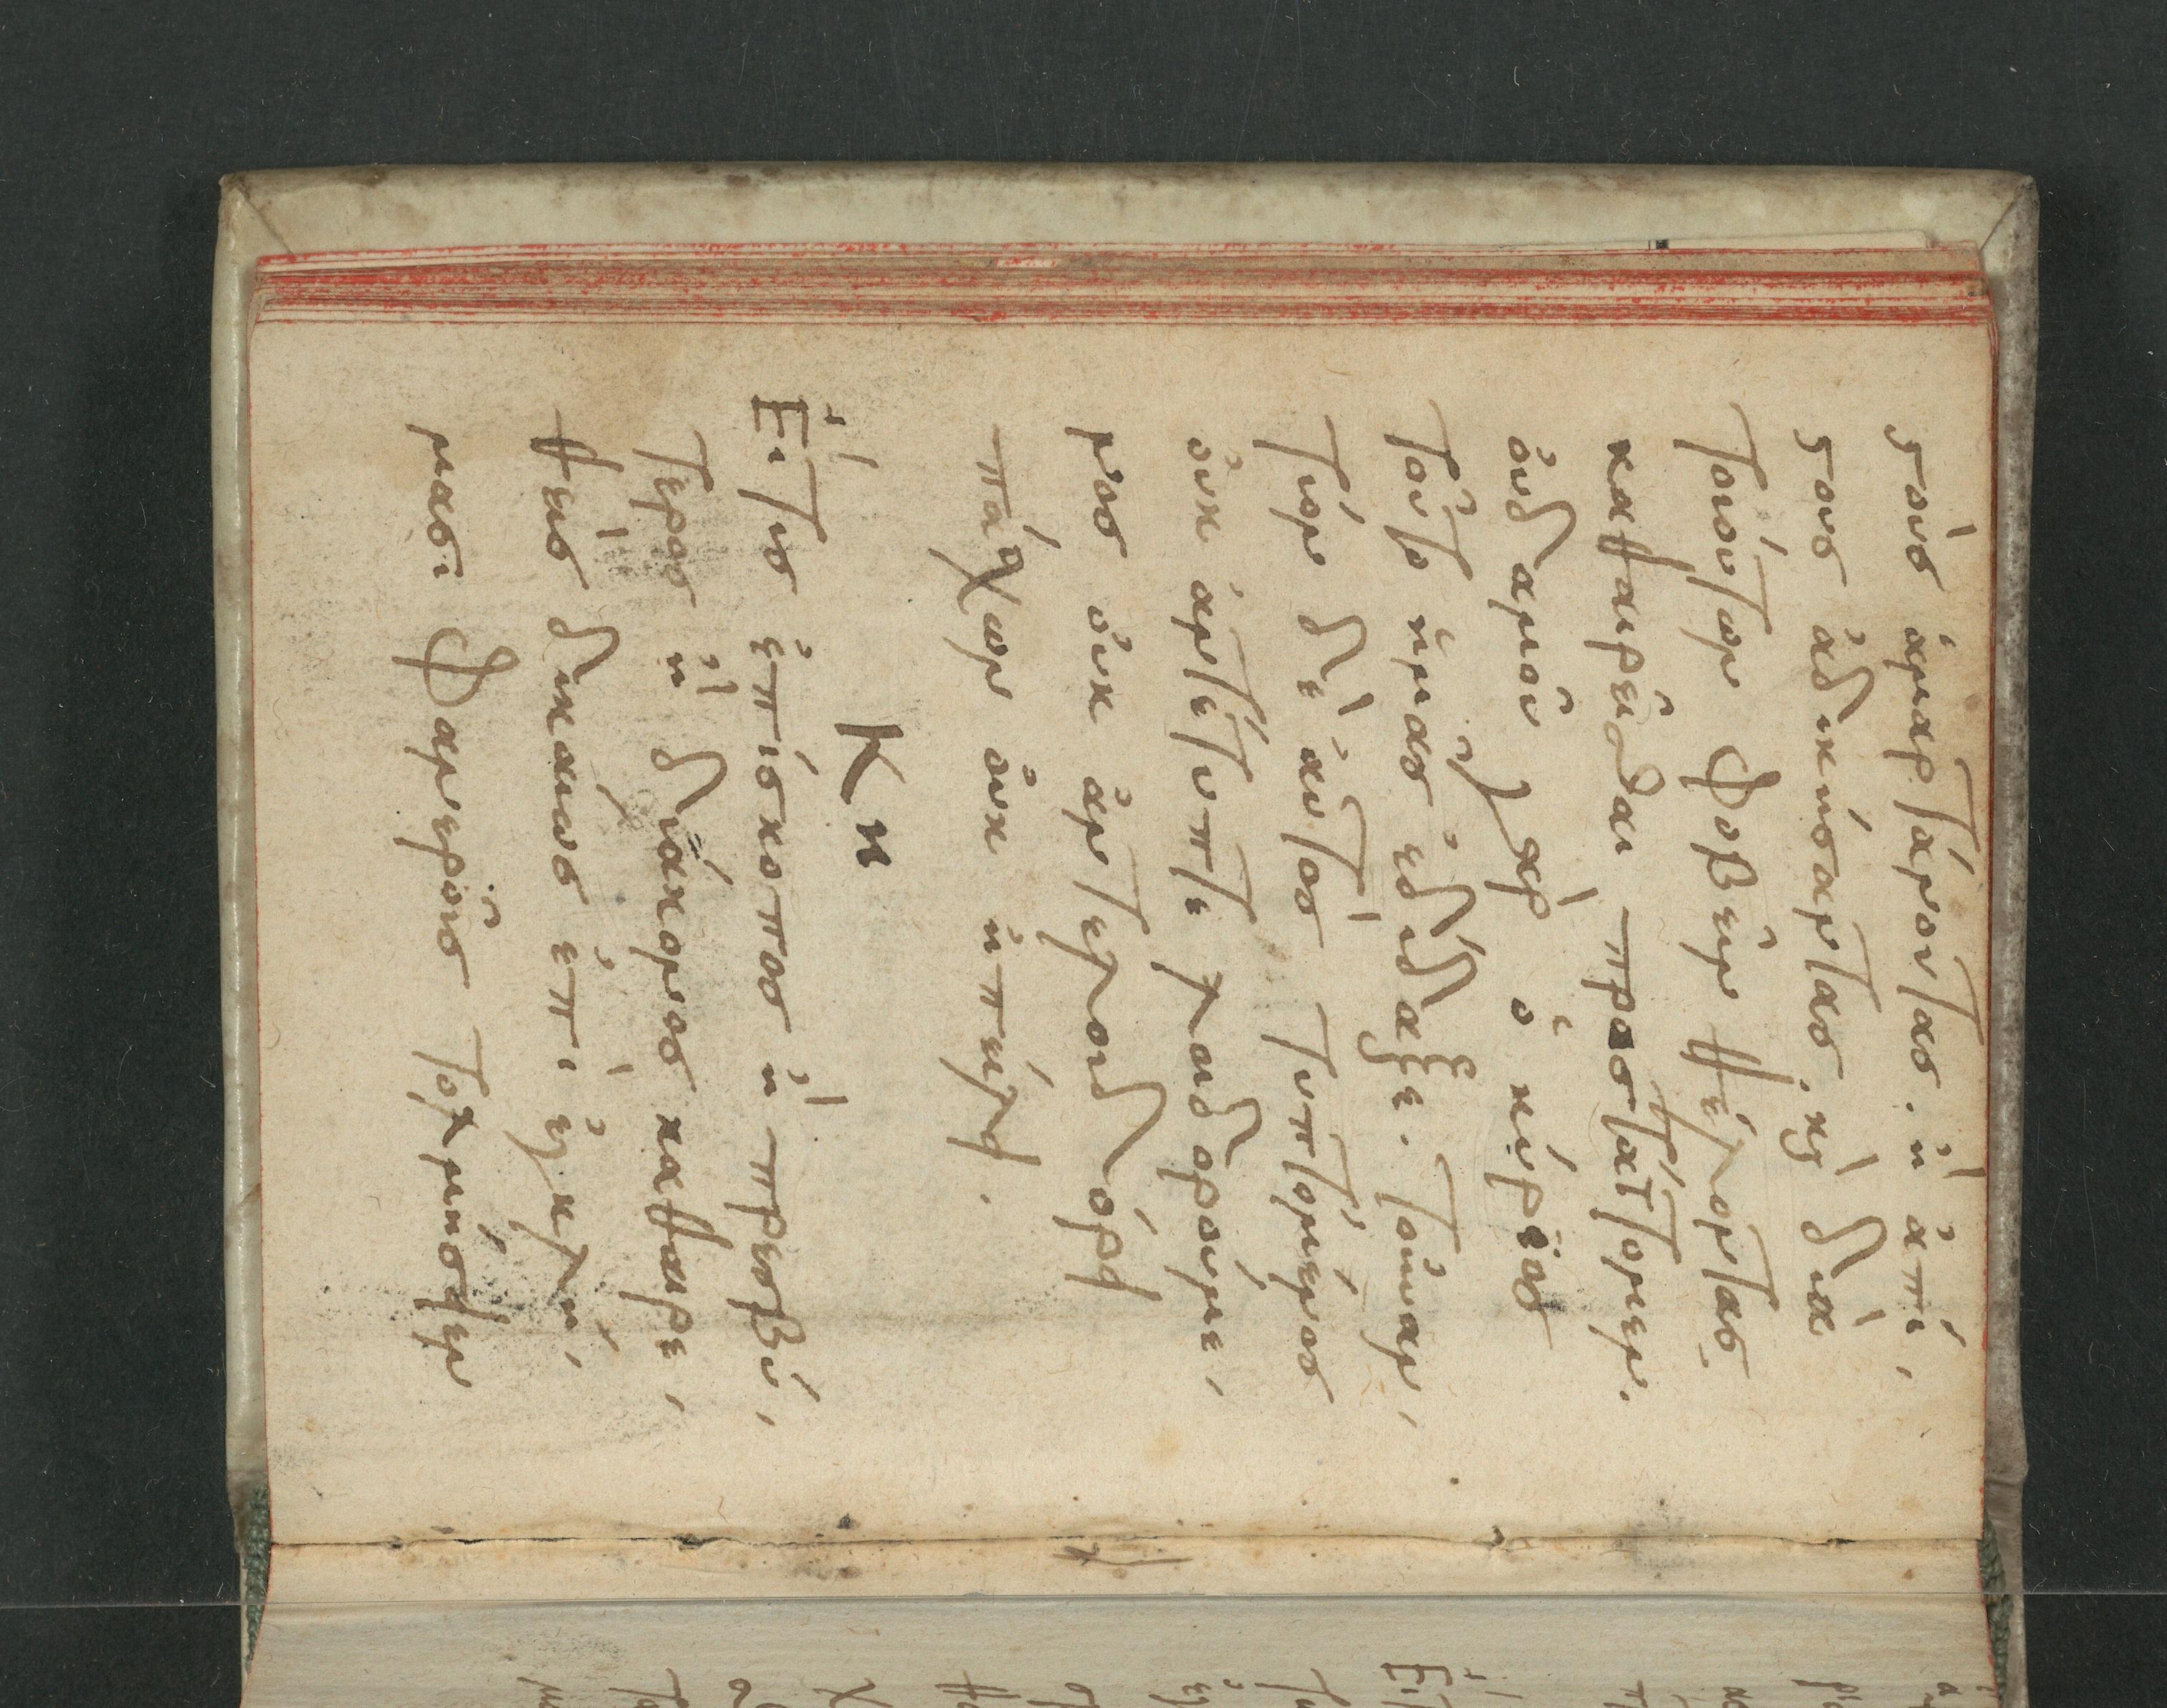 στοὺς ἁμαρτάνοντας. ἢ ἀπί,
στους ἀδικήσαντας. κỳ διὰ
τοιούτων φοβεῖν θέλοντας.
καθαιρεῖσθαι προστάττομεν.
οὐδαμοῦ γὰρ ὁ κύριος
τοῦτο ἡμᾶς ἐδίδαξε. τοὐναν,
τίον δὲ αὐτὸς τυπτόμενος
οὐκ ἀντέτυπτε λοιδορούμε,
νος οὐκ ἀντελοιδόρει
πάσχων οὐκ ἠπείλει.
Κη
Εἴ τις ἐπίσκοπος ἢ πρεσβύ,
τερος ἢ διάκονος καθαιρε,
θεὶς δικαίως ἐπὶ ἐγκλή,
μασι φανεροῖς τολμήσειεν